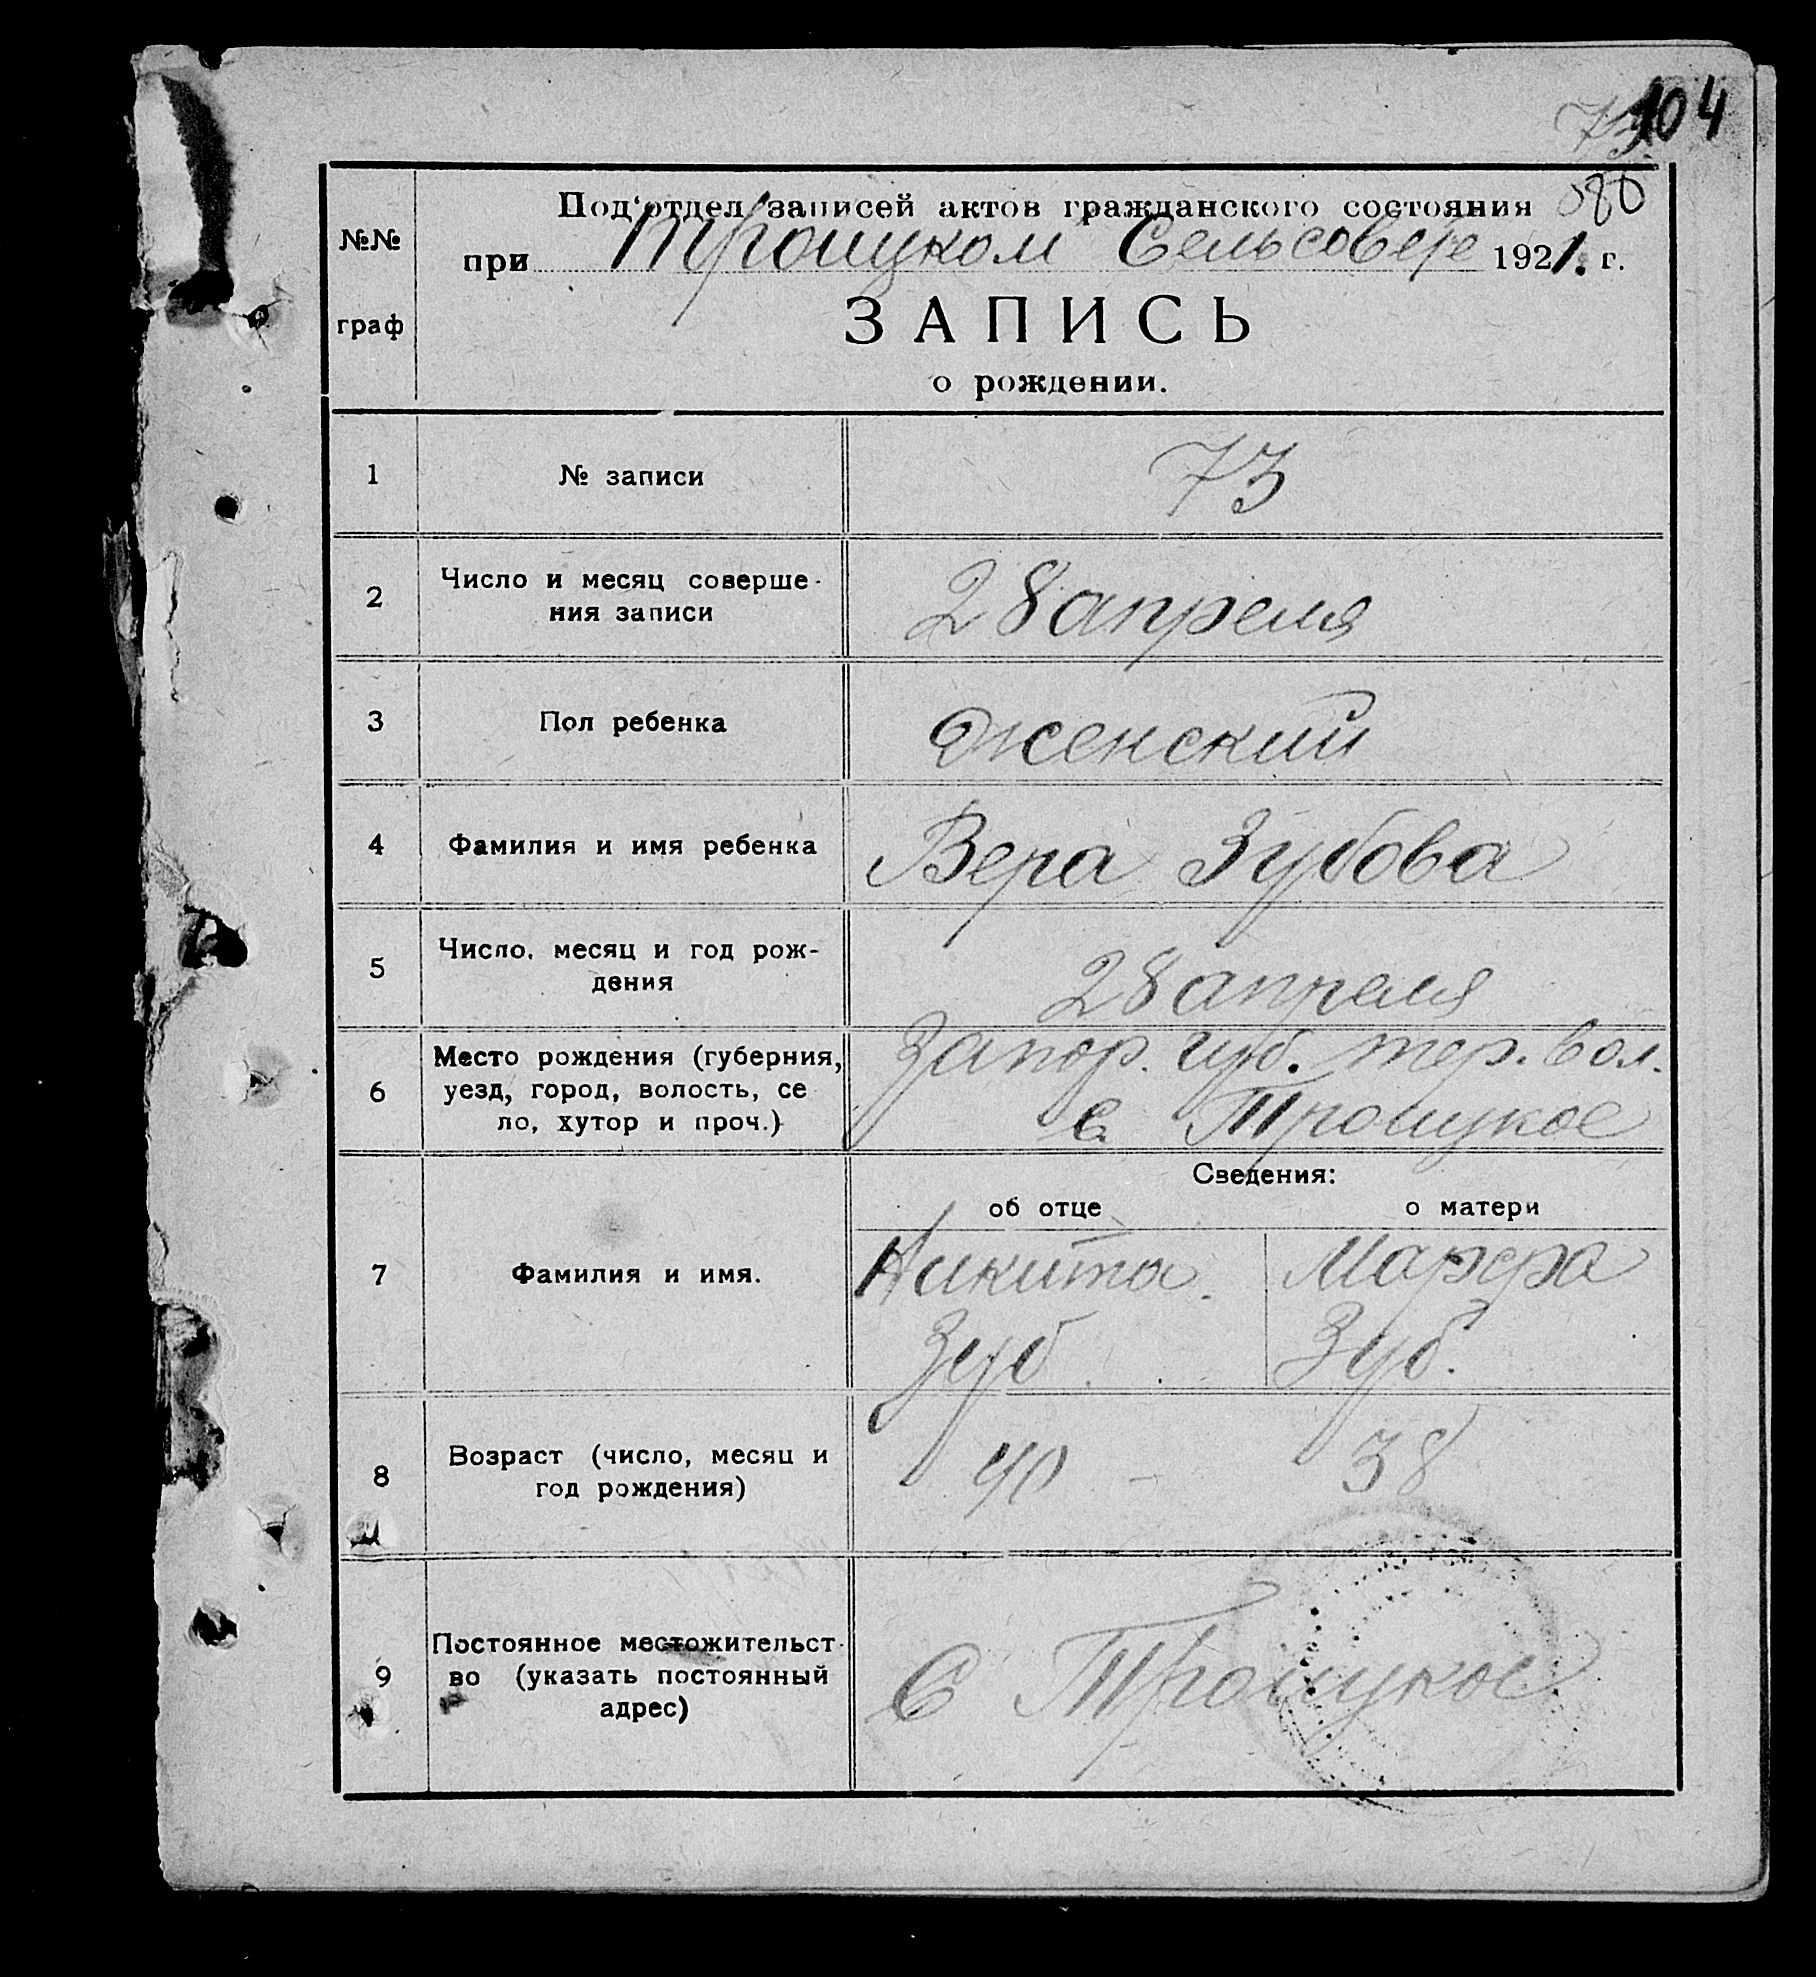 104
73
80
Под‘отдел записей актов гражданского состояния
№№
при Троицком Сельсовете 1921. г.
граф
ЗАПИСЬ
о рождении.
1 № записи 73
2 Число и месяц соверше-
ния записи 28 апреля
3 Пол ребенка женский
4 Фамилия и имя ребенка Вера Зубова
5 Число, месяц и год рож-
дения 28 апреля
6 Место рождения (губерния, Запор. губ. тер. вол.
уезд, город, волость, се
ло, хутор и проч.) с Троицкое
Сведения:
об отце о матери
7 Фамилия и имя. Никита Марфа
Зуб Зуб.
8 Возраст (число, месяц и
год рождения) 40 - 38
9 Постоянное местожительст-
во (указать постоянный
адрес) С Троицкое